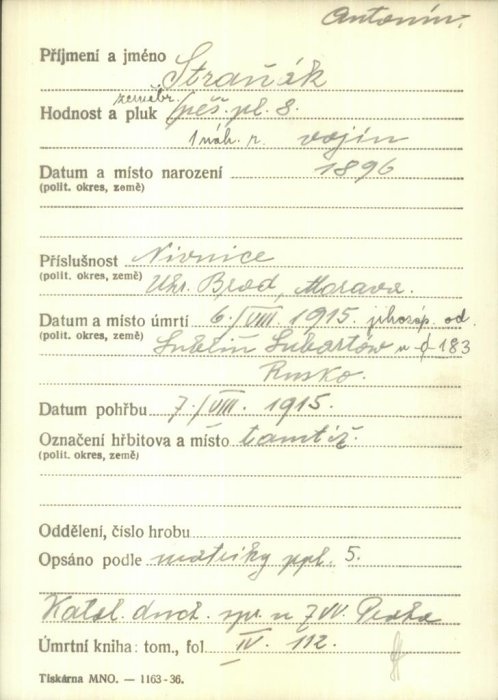 Antonín.
Příjmení a jméno Straňák
zeměbr.
Hodnost a pluk pěš. pl. 8.
1 náh. r. vojín
Datum a místo narození 1896
(polit. okres, země)
Příslušnost Nivnice
(polit. okres, země) Uhr. Brod, Morava.
Datum a místo úmrtí 6./VIII. 1915. jihozáp. od
(polit. okres, země) Lublin Lubartów 183
Rusko.
Datum pohřbu 7./VIII. 1915.
Označení hřbitova a místo tamtéž.
(polit. okres, země)
Oddělení, číslo hrobu
Opsáno podle matriky ppl. 5.
Katol. duch. spr. u ZVV. Praha
Úmrtní kniha: tom., fol IV. 112.
Tiskárna MNO. — 1163-36.